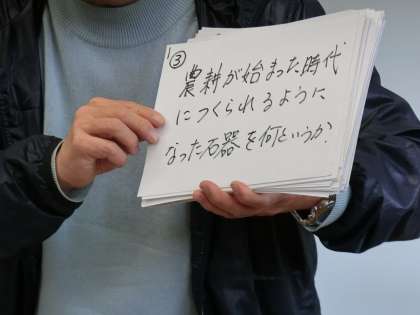 ③
農耕が始まった時代
につくられるように
なった石器を何というか